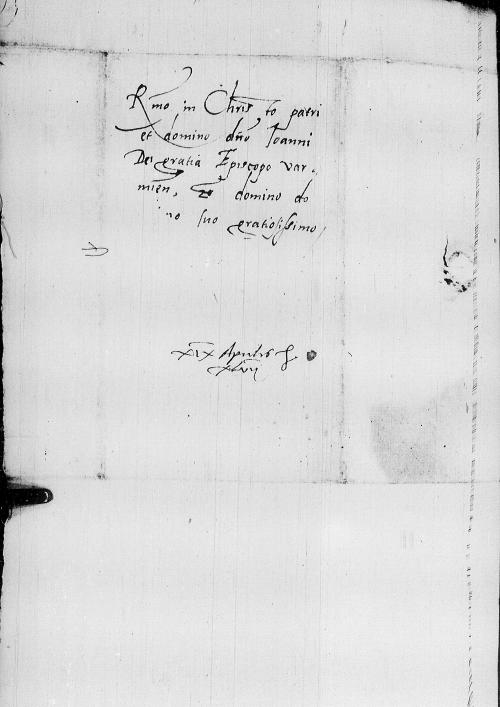 Rmo in Christo patri
et domino dno Joanni
Dei gratia Episcopo Var-
mien, & domino do
no suo gratiosissimo
XIX Aprilis
XLVII